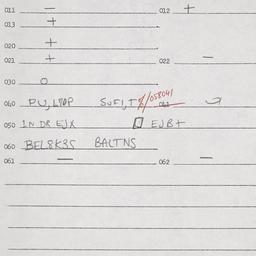 011 — 012 +
013 +
020 +
021 + 022 —
030 O
040 PU, LTOP SUFI, T 058041
050 IN DR EJX EJB+
060 BEL8K35 BALTNS
061 — 062 —